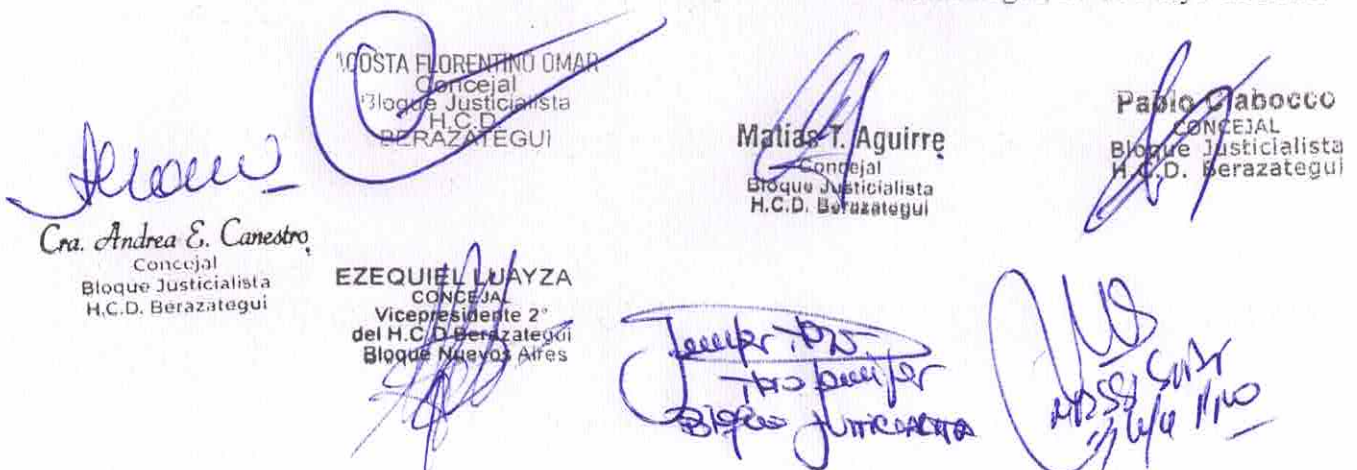 ACOSTA FLORENTINO OMAR
Concejal
Bloque Justicialista
H.C.D.
BERAZATEGUI
Matias T. Aguirre
Concejal
Bloque Justicialista
H.C.D. Berazategui
Pablo Ciabocco
CONCEJAL
Bloque Justicialista
H.C.D. Berazategui
Cra. Andrea E. Canestro
Concejal
Bloque Justicialista
H.C.D. Berazategui
EZEQUIEL LUAYZA
CONCEJAL
Vicepresidente 2°
del H.C.D Berazategui
Bloque Nuevos Aires
Jennifer
Bloque Justicialista